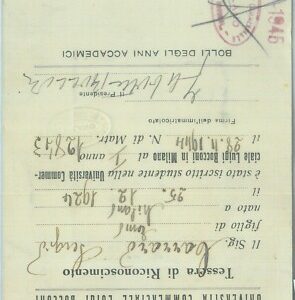 UNIVERSITÀ COMMERCIALE LUIGI BOCCONI
Tessera di Riconoscimento
Il Sig.
Sergio
figlio di
nato a Milano
il 25. 12. 1924
è stato iscritto studente nella Università Commer-
ciale Luigi Bocconi in Milano al I anno
il 28. 11. 1944 N. di Matr. 12843
Firma dell'immatricolato
Il Presidente
BOLLI DEGLI ANNI ACCADEMICI
1946